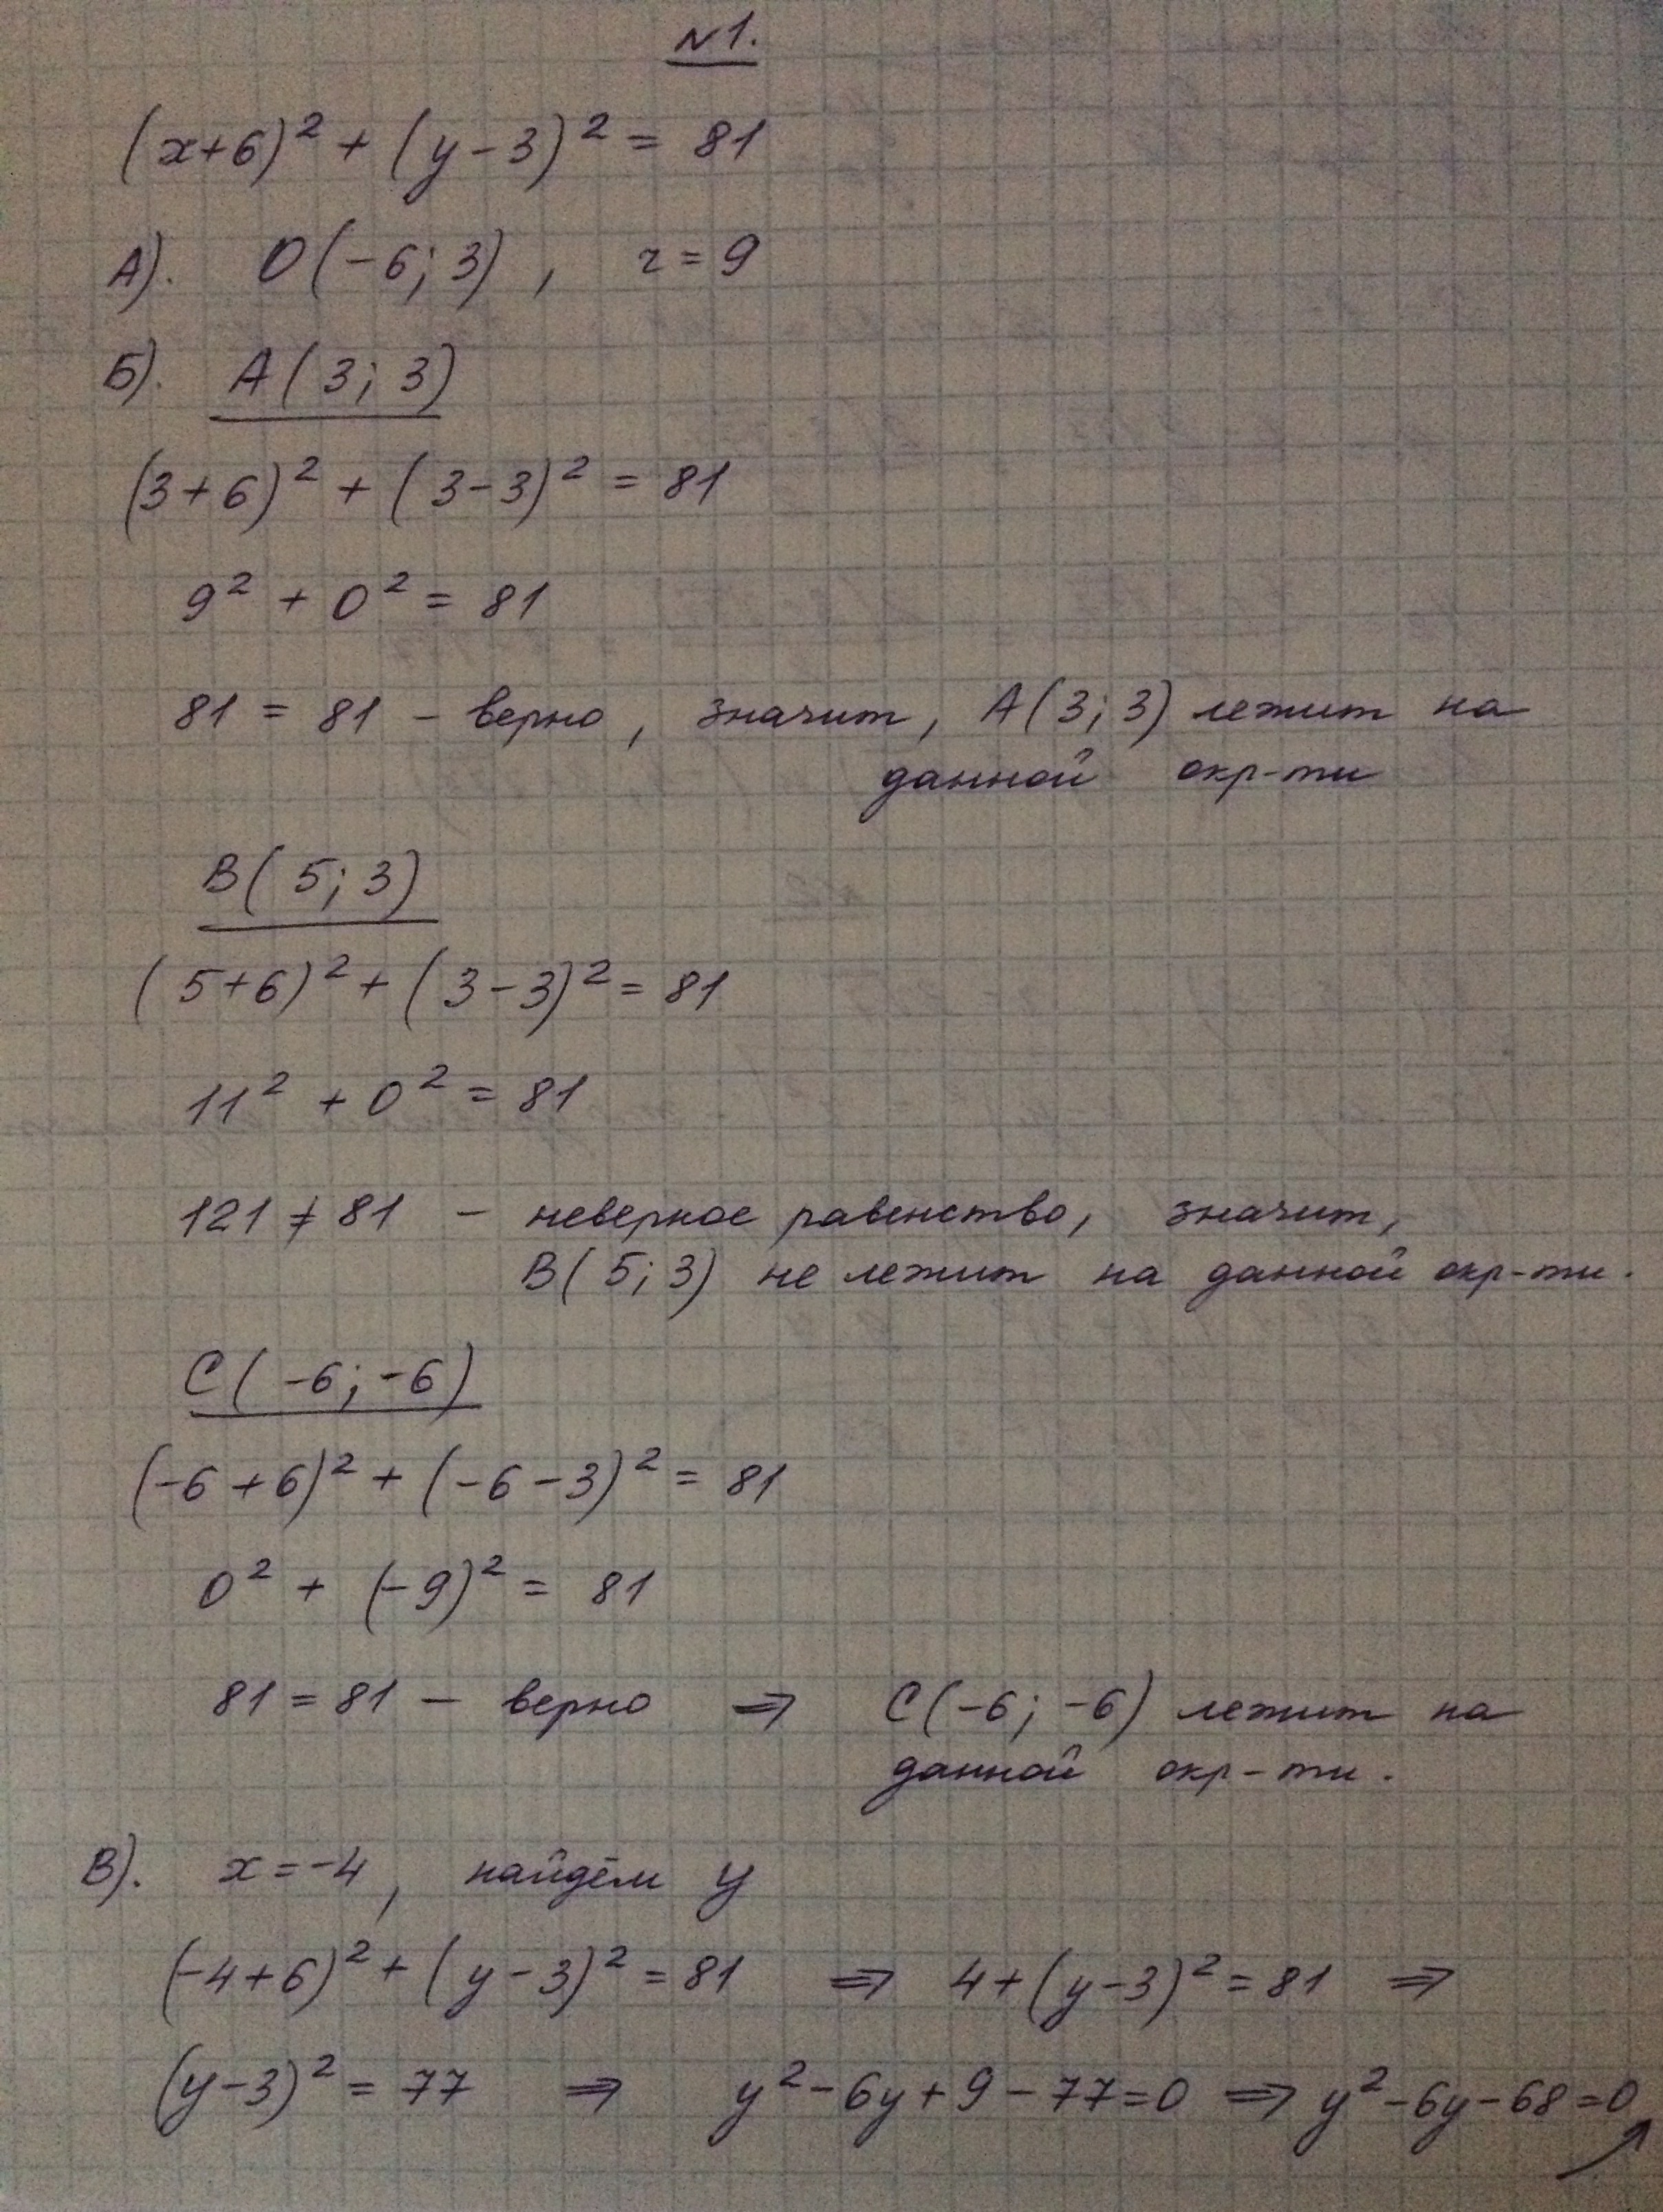 №1.
(x+6)² + (y-3)² = 81
А). O(-6; 3) , r = 9
Б). A(3; 3)
(3+6)² + (3-3)² = 81
9² + 0² = 81
81 = 81 - верно, значит, A(3; 3) лежит на
данной окр-ти
B(5; 3)
(5+6)² + (3-3)² = 81
11² + 0² = 81
121 ≠ 81 - неверное равенство, значит,
B(5; 3) не лежит на данной окр-ти.
C(-6; -6)
(-6+6)² + (-6-3)² = 81
0² + (-9)² = 81
81 = 81 - верно ⇒ C(-6; -6) лежит на
данной окр-ти.
В). x = -4, найдём y
(-4+6)² + (y-3)² = 81 ⇒ 4+(y-3)² = 81 ⇒
(y-3)² = 77 ⇒ y²-6y+9-77=0 ⇒ y²-6y-68=0